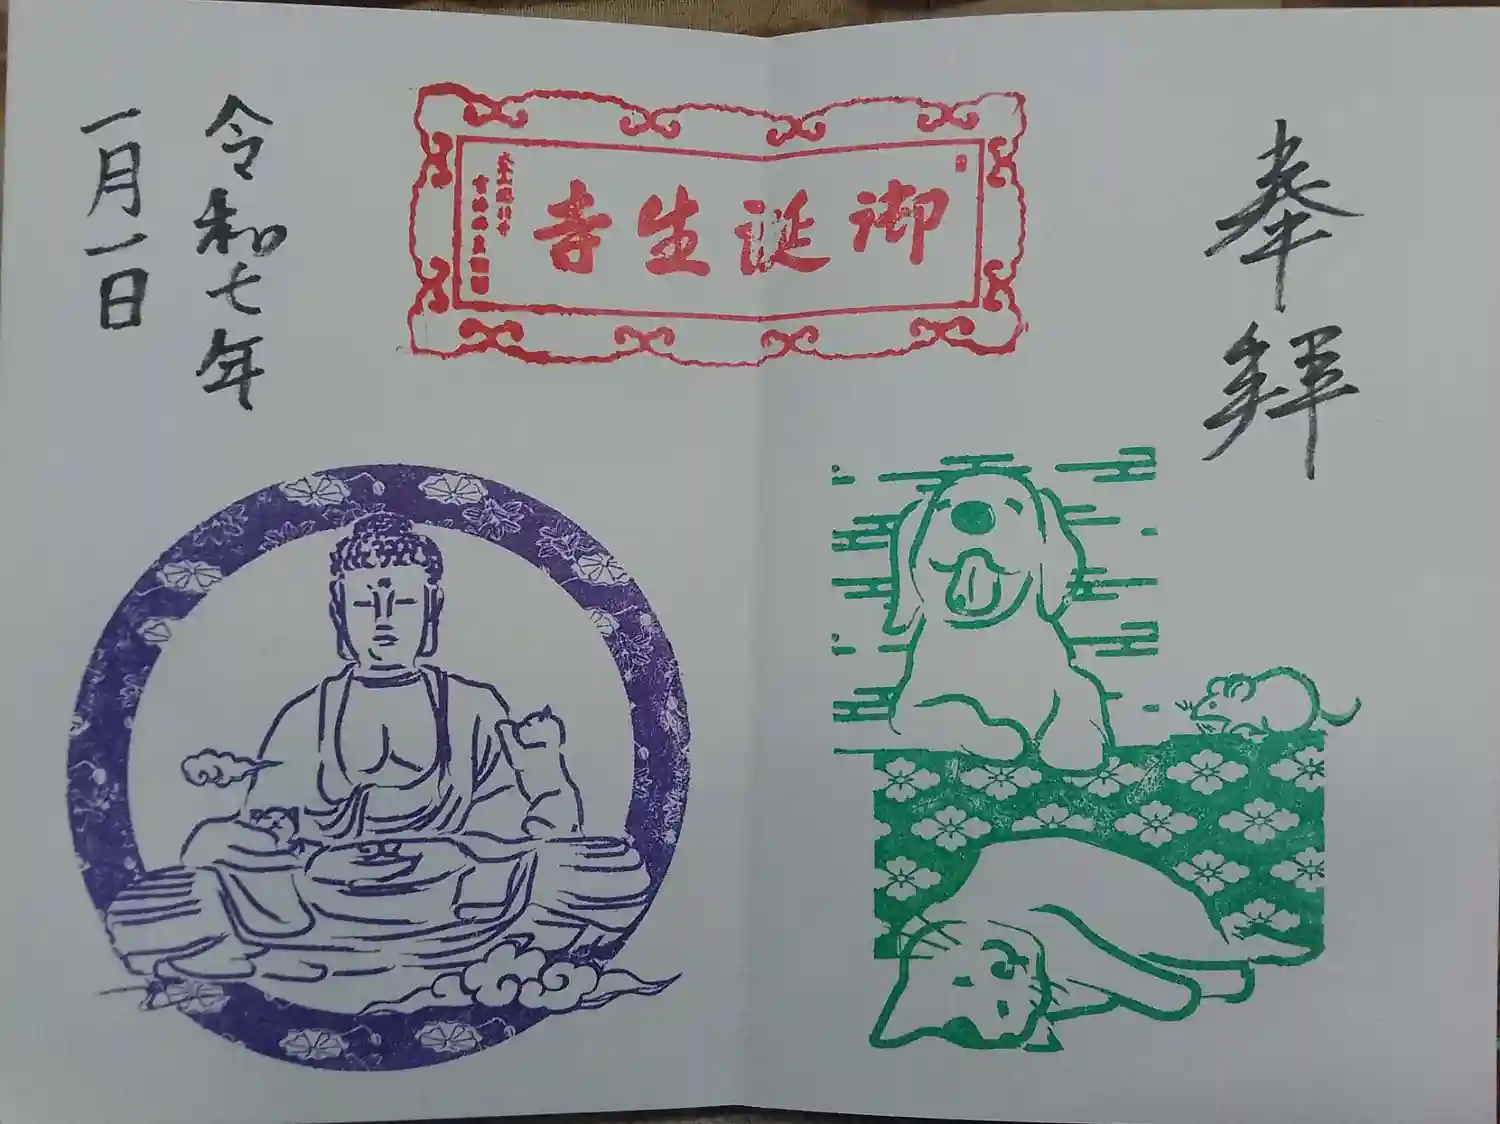 奉拜
御誕生寺
令和七年
一月一日